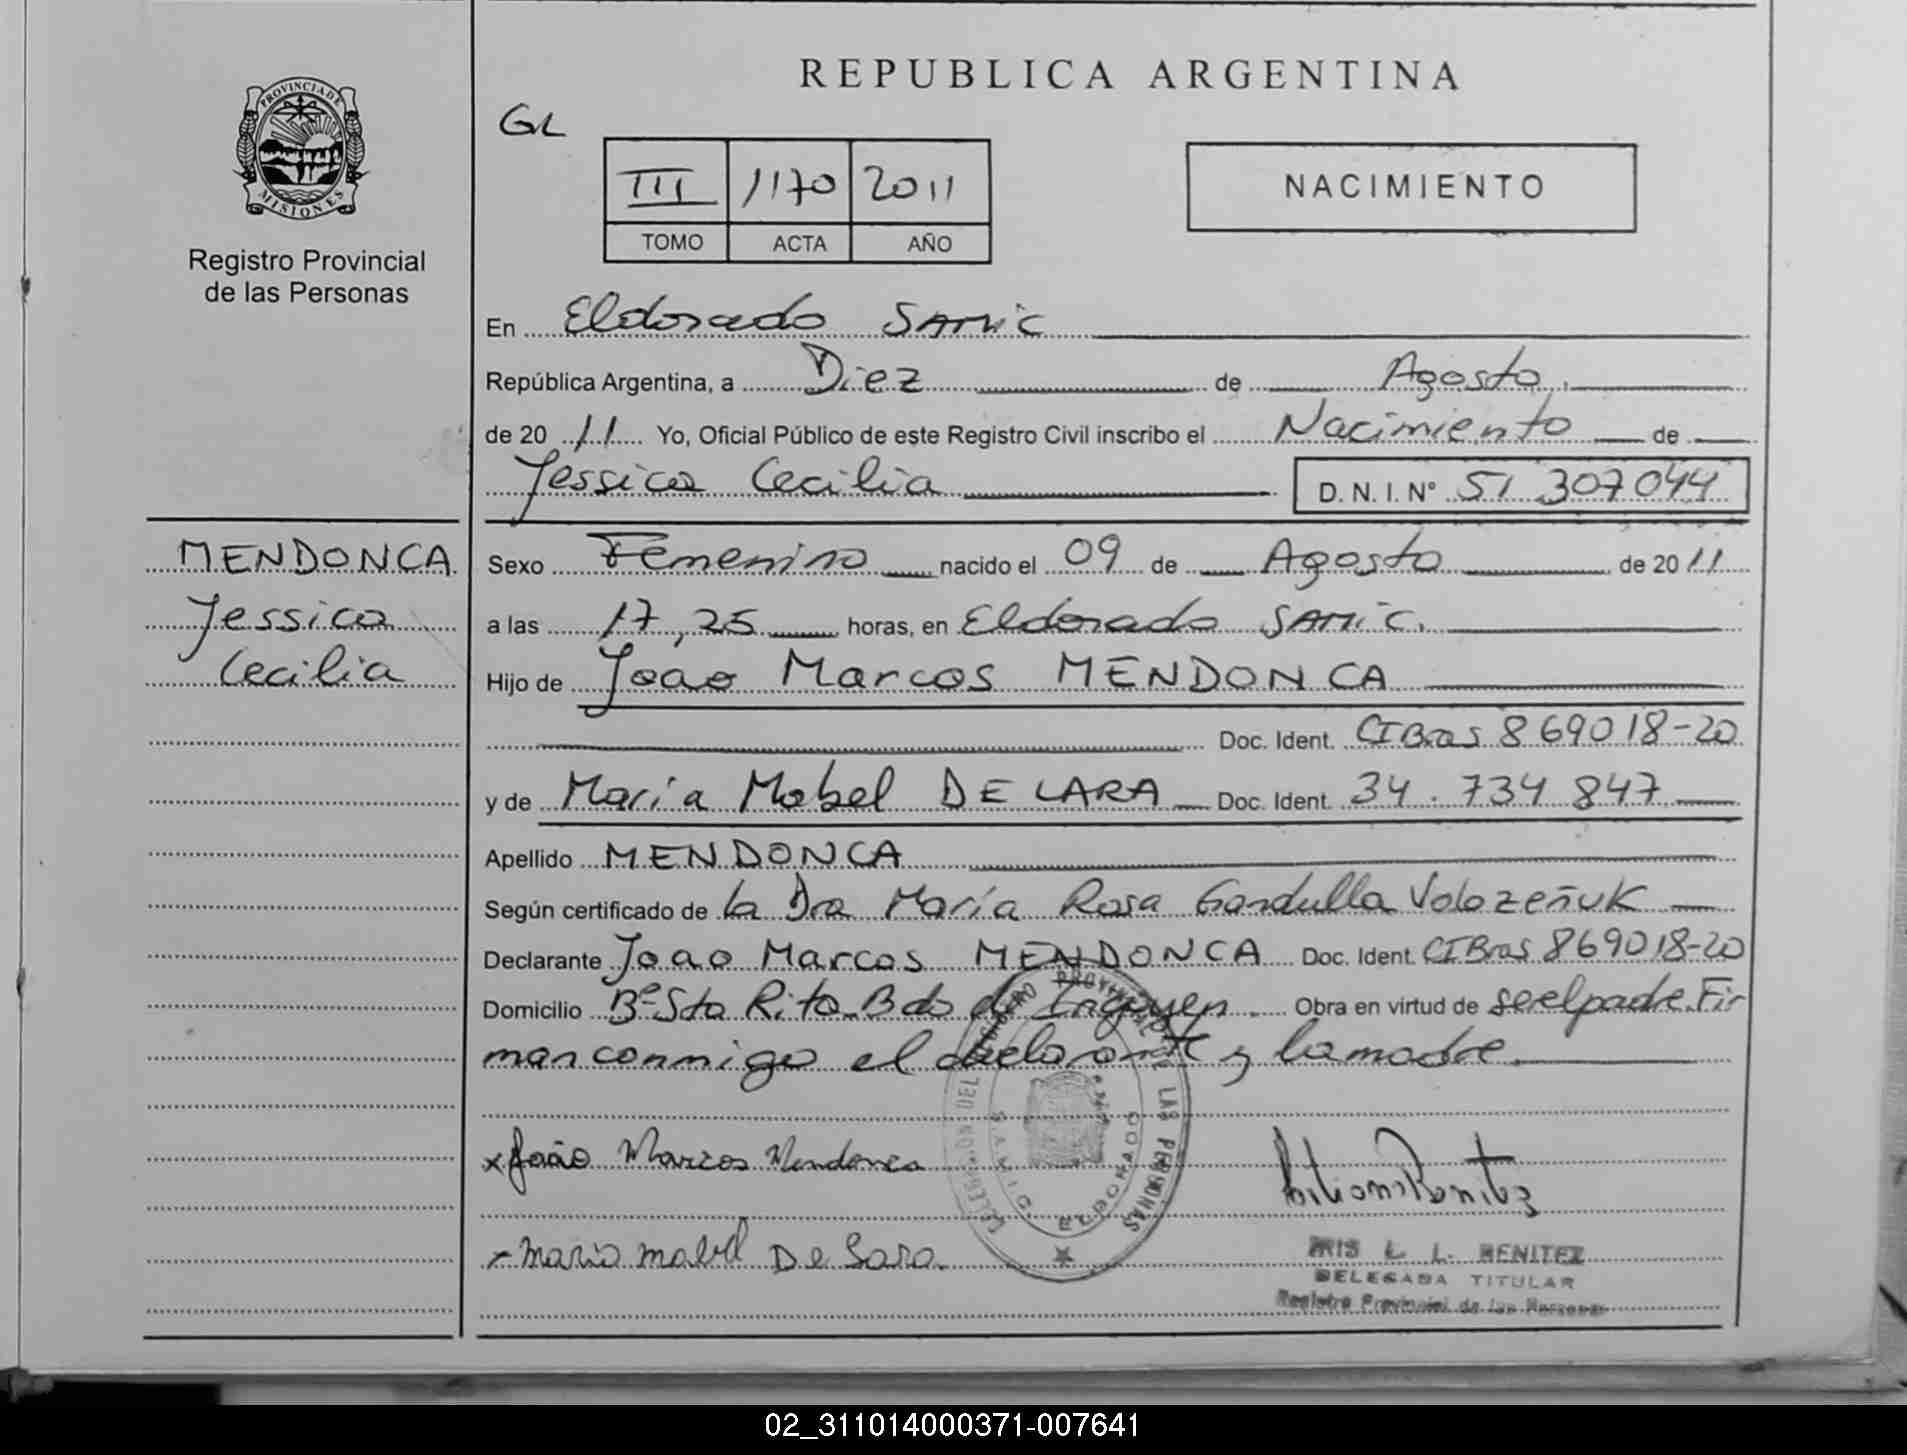 REPUBLICA ARGENTINA
GL
PROVINCIA DE
MISIONES
Registro Provincial
de las Personas
III 1170 2011
TOMO ACTA AÑO
NACIMIENTO
En Eldorado SAMIC
República Argentina, a Diez de Agosto
de 20 11 Yo, Oficial Público de este Registro Civil inscribo el Nacimiento de
Jessica Cecilia D.N.I. Nº 51 307044
MENDONCA
Jessica
Cecilia
Sexo Femenino nacido el 09 de Agosto de 2011
a las 17,25 horas, en Eldorado SAMIC.
Hijo de Joao Marcos MENDONCA
Doc. Ident. CI Bras 869018-20
y de Maria Mabel DE LARA Doc. Ident. 34.734 847
Apellido MENDONCA
Según certificado de la Dra María Rosa Gandulla Volozeñuk
Declarante Joao Marcos MENDONCA Doc. Ident. CI Bras 869018-20
Domicilio Bº Sta Rita Bdo de Irigoyen. Obra en virtud de ser el padre. Fir
man conmigo el declarante y la madre.
x João Marcos Mendonca
Maria mabel De Lara
PROVINCIAL DE LAS PERSONAS
SAMIC ELDORADO
IRIS L. L. BENITEZ
DELEGADA TITULAR
Registro Provincial de las Personas
02_311014000371-007641